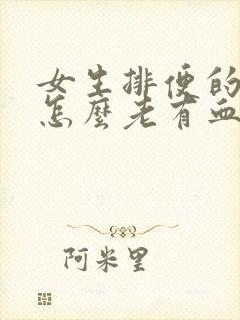 女生排便的
怎麼老有血
阿米里